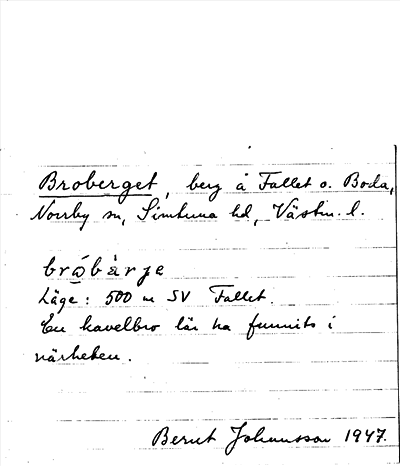 Broberget, berg å Fallet o. Boda,
Norrby sn, Simtuna hd, Västm. l.
brωbàrje
Läge: 500 m SV Fallet.
En kavelbro lär ha funnits i
närheten.
Bernt Johansson 1947.